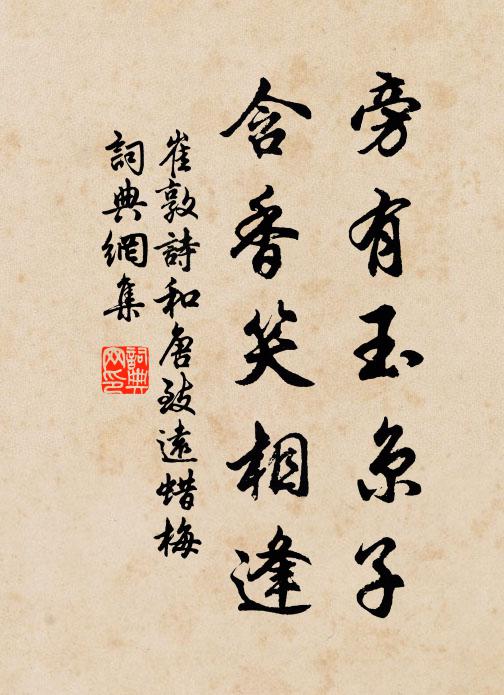 旁有玉京子
含香笑相逢
崔敦詩和唐致遠蜡梅
詞典網集
詞典网印